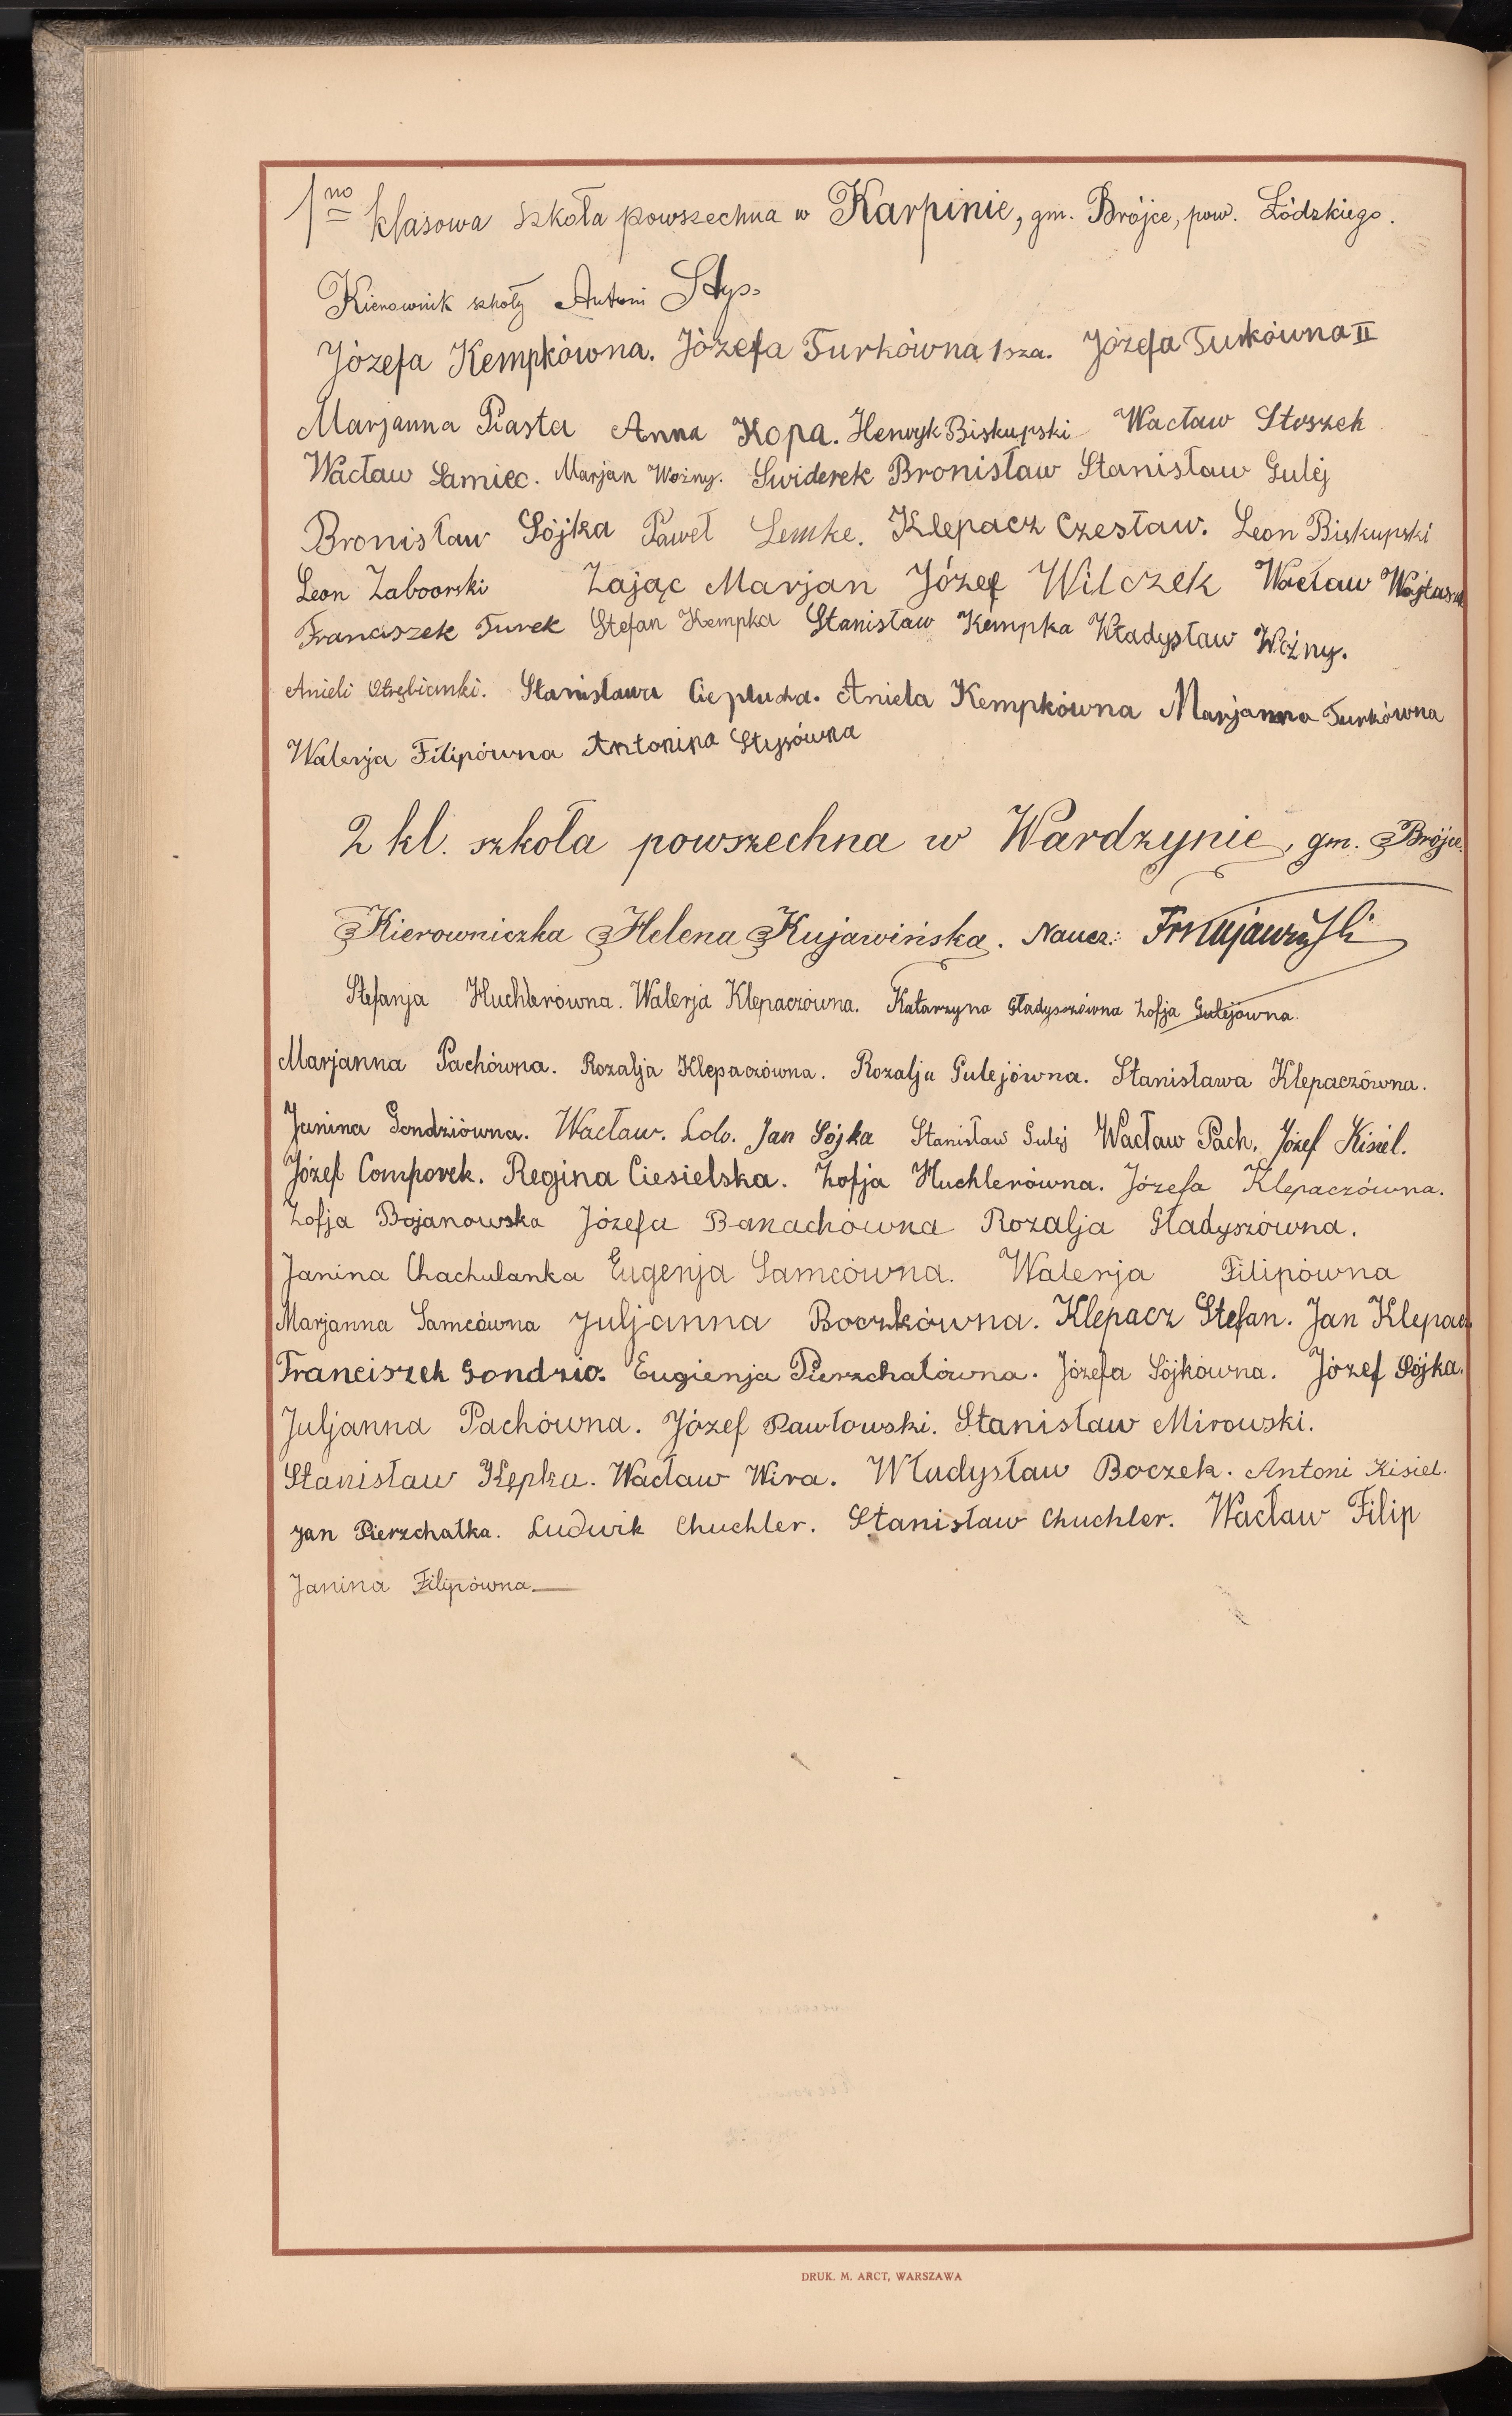 1no klasowa szkoła powszechna w Karpinie, gm. Brójce, pow. Łódzkiego.
Kierownik szkoły Antoni Styś
Józefa Kempkówna. Józefa Turkówna 1sza. Józefa Turkówna II
Marjanna Piasta Anna Kopa. Henryk Biskupski Wacław Stoszek
Wacław Samiec. Marjan Woźny. Swiderek Bronisław Stanisław Gulej
Bronisław Sójka Paweł Lemke. Klepacz Czesław. Leon Biskupski
Leon Zaboorski Zając Marjan Józef Wilczek Wacław
Franciszek Turek Stefan Kempka Stanisław Kempka Władysław Woźny.
Anieli Stanisława Ciepłucha. Aniela Kempkówna Marjanna Turkówna
Walerja Filipówna Antonina Stysówna
2 kl. szkoła powszechna w Wardzynie, gm. Brójce.
Kierowniczka Helena Kujawińska. Naucz.:
Stefanja Huchlerówna. Walerja Klepaczówna. Katarzyna Gładyszówna Zofja Gulejówna.
Marjanna Pachówna. Rozalja Klepaczówna. Rozalja Gulejówna. Stanisława Klepaczówna.
Janina Gondziówna. Wacław. Jan Sójka Stanisław Gulej Wacław Pach. Józef Kisiel.
Józef Comporek. Regina Ciesielska. Zofja Huchlerówna. Józefa Klepaczówna.
Zofja Bojanowska Józefa Banachówna Rozalja Gładyszówna.
Janina Chachulanka Eugenja Samcówna. Walerja Filipówna
Marjanna Samcówna Juljanna Boczkówna. Klepacz Stefan. Jan Klepacz
Franciszek Gondzio. Eugienja Pierzchałówna. Józefa Sójkówna. Józef Sójka.
Juljanna Pachówna. Józef Pawłowski. Stanisław Mirowski.
Stanisław Kępka. Wacław Wira. Władysław Boczek. Antoni Kisiel.
Jan Pierzchałka. Ludwik Chuchler. Stanisław Chuchler. Wacław Filip
Janina Filipówna
DRUK. M. ARCT, WARSZAWA